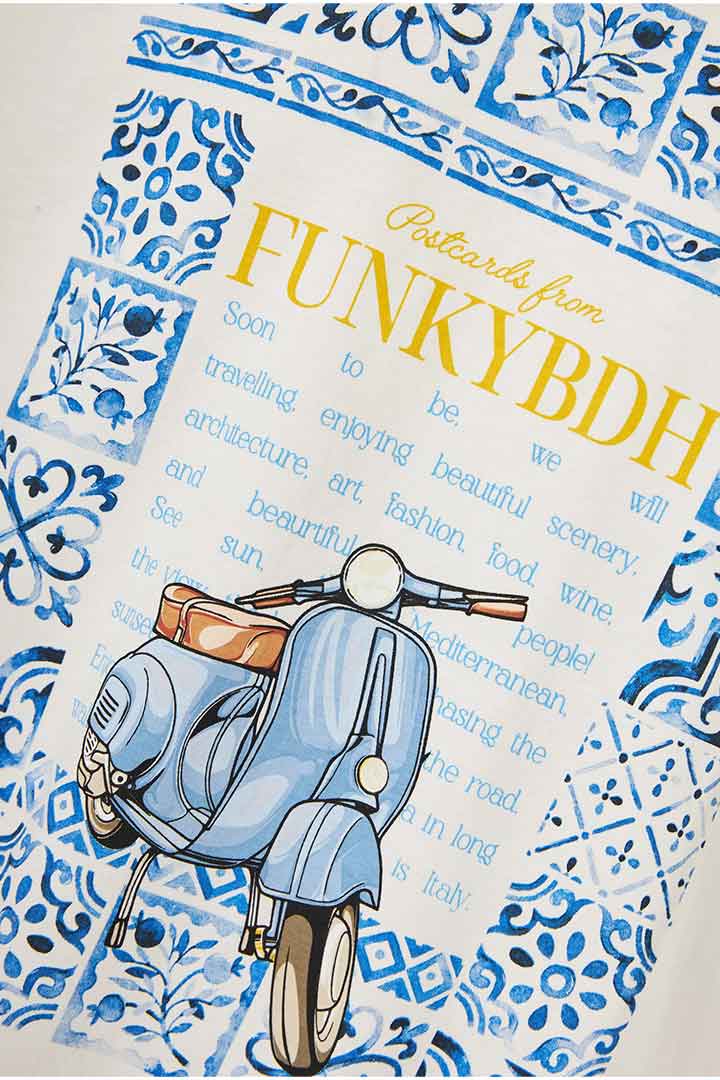 Postcards from
FUNKYBDH
Soon to be, we will
travelling, enjoying beautiful scenery,
architecture, art, fashion, food, wine,
and beaurtiful people!
See sun, Mediterranean,
the view, hasing the
sunse he road.
a in long
is Italy.